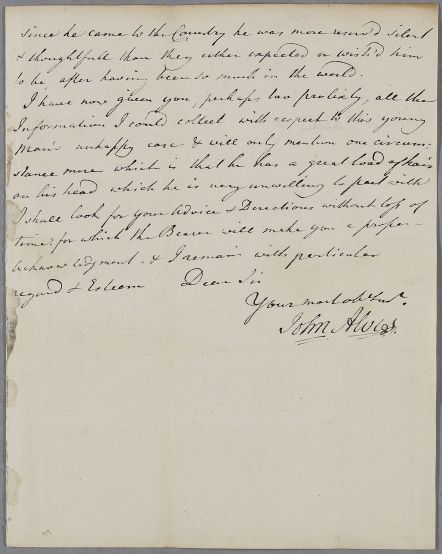 since he came to the Country he was more reserv'd silent
& thoughtfull than they either expected or wish'd him
to be, after having been so much in the world.
I have now given you, perhaps too prolixly, all the
Information I could collect with respect to this young
Man's unhappy case & will only mention one circum:
stance more which is that he has a great load of hair
on his head which he is very unwilling to part with
I shall look for your Advice & Directions without loss of
time; for which the Bearer will make you a proper
acknowledgment. & I remain with particular
regard & Esteem Dear Sir
Your most obt Servt.
John Alves.